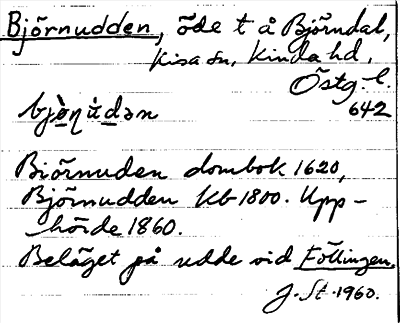 Björnudden, öde t å Björndal,
Kisa sn, Kinda hd,
Östg. l.
642
bjò̱ŋu̇̀d̲ən
Biörnuden dombok 1620,
Björnudden kb 1800. Upp-
hörde 1860.
Beläget på udde vid Föllingen.
J. St. 1960.